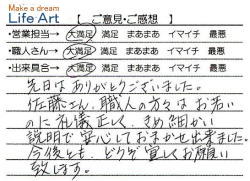 Make a dream
Life Art 【 ご意見・ご感想 】
・営業担当→ 大満足 満足 まあまあ イマイチ 最悪
・職人さん→ 大満足 満足 まあまあ イマイチ 最悪
・出来具合→ 大満足 満足 まあまあ イマイチ 最悪
先日はありがとうございました。
佐藤さん、職人の方々はお若い
のに礼儀正しく、きめ細かい
説明で安心しておまかせ出来ました。
今後とも、どうぞ宜しくお願い
致します。